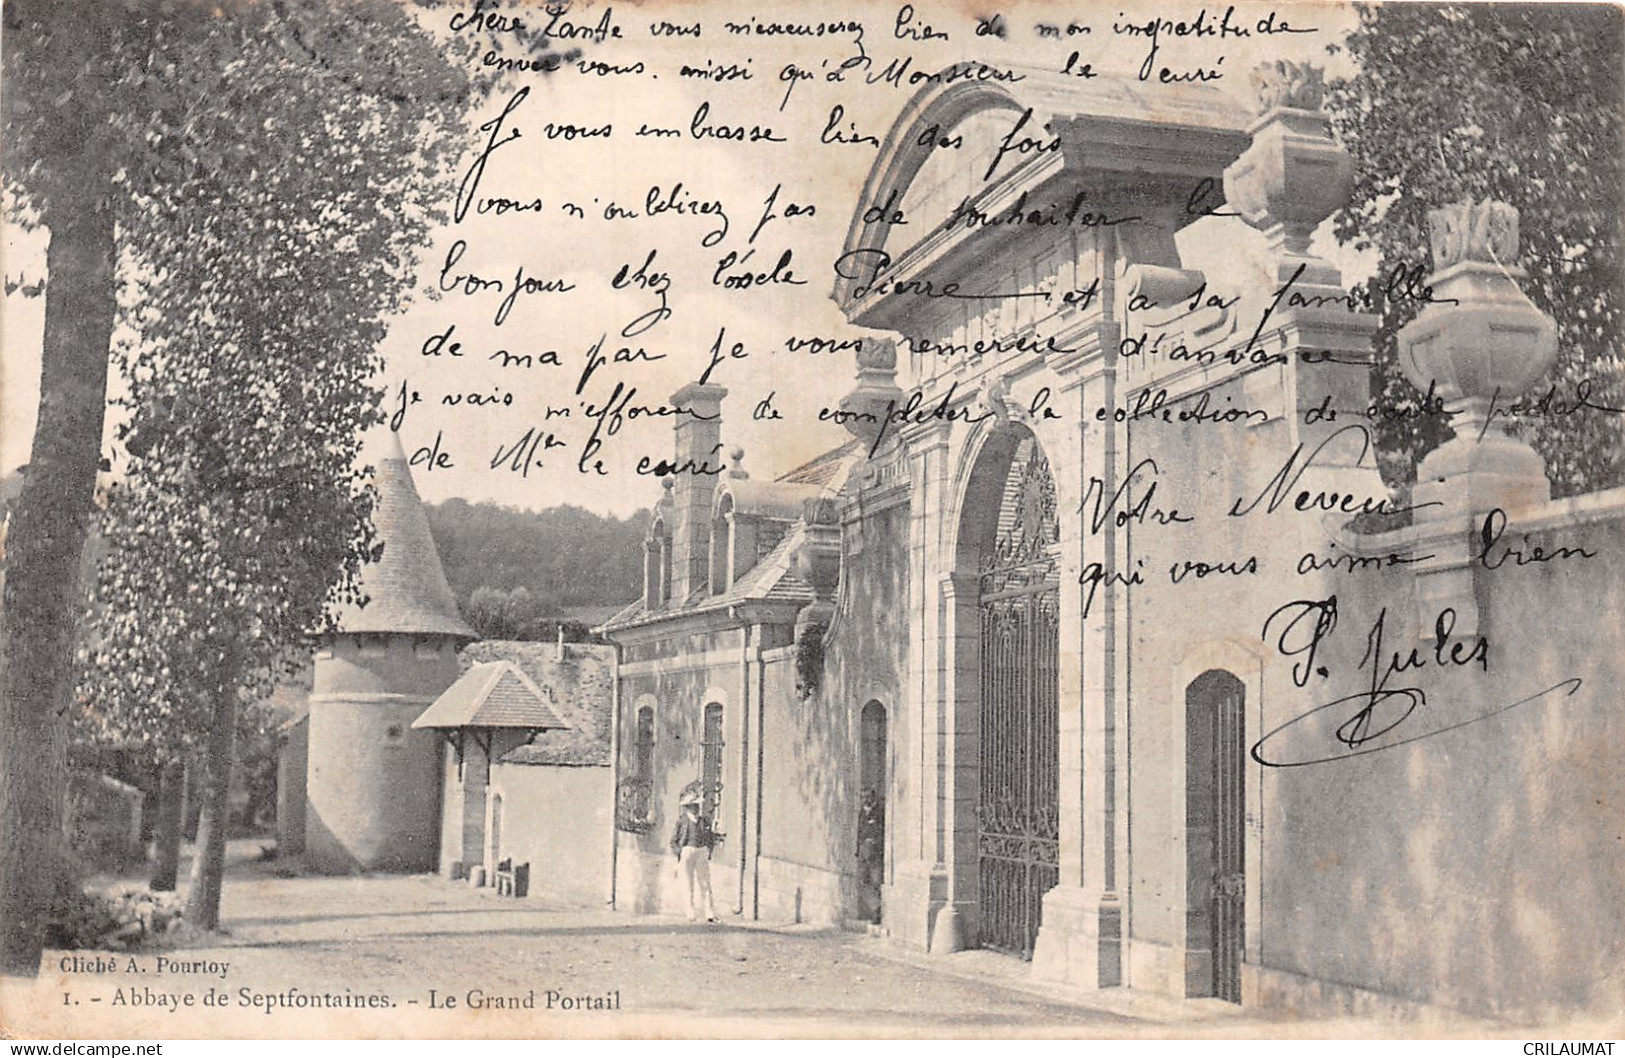 chère Tante vous m'excuserez bien de mon ingratitude
enver vous. ainssi qu'à Monsieur le curé
Je vous embrasse bien des fois
vous n'oublirez pas de souhaiter le
bonjour chez l'oncle Pierre et a sa famille
de ma par je vous remercie d'anvance
je vais m'efforcer de completer la collection de carte postal
de Mer le curé
Votre Neveu
qui vous aime bien
P. Jules
Cliché A. Pourtoy
1. - Abbaye de Septfontaines. - Le Grand Portail
https://www.delcampe.net
CRILAUMAT